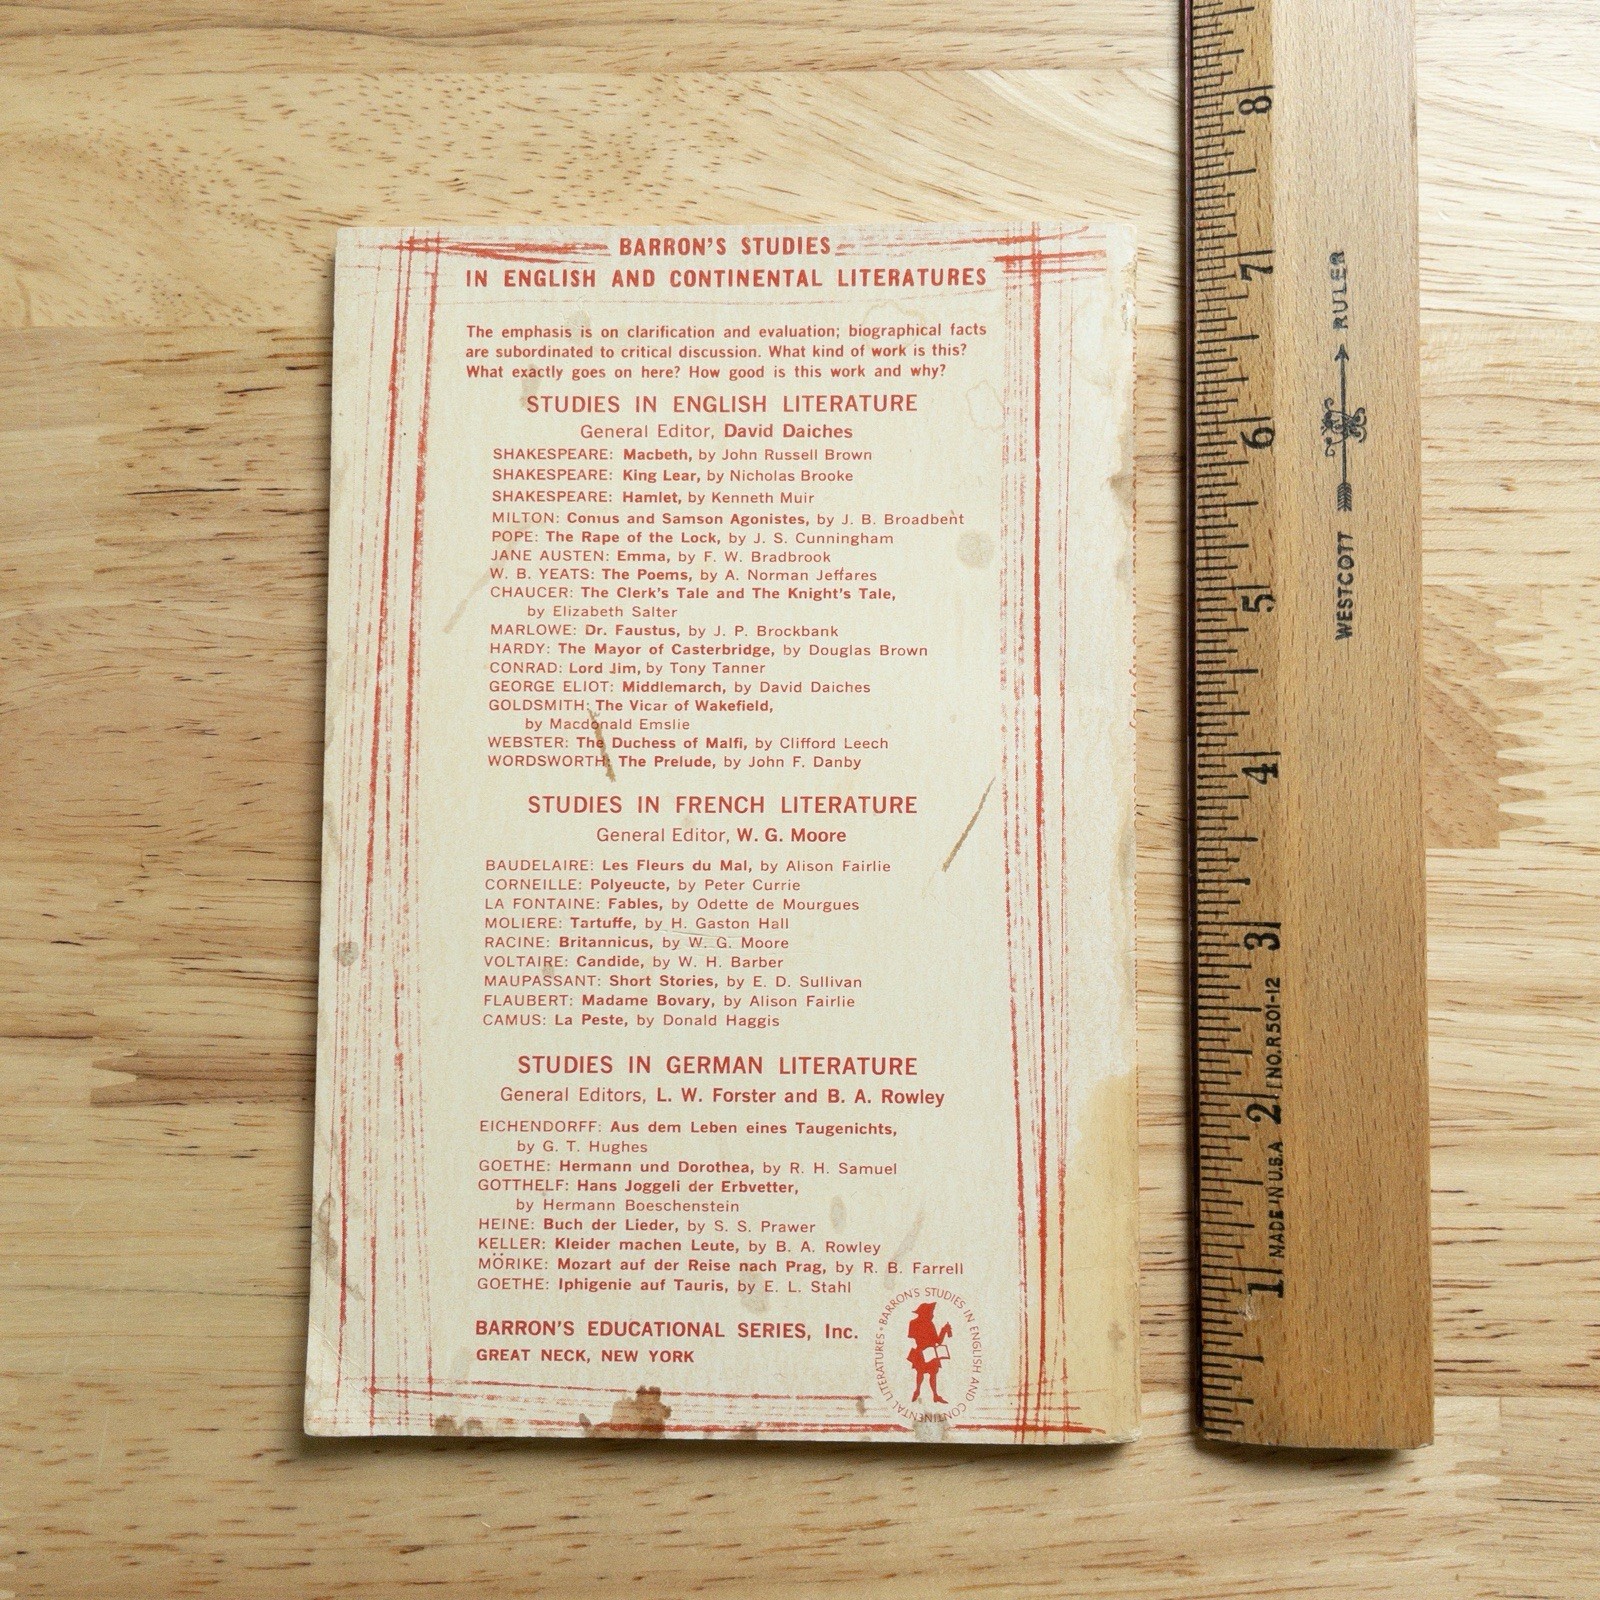 BARRON'S STUDIES
IN ENGLISH AND CONTINENTAL LITERATURES
The emphasis is on clarification and evaluation; biographical facts
are subordinated to critical discussion. What kind of work is this?
What exactly goes on here? How good is this work and why?
STUDIES IN ENGLISH LITERATURE
General Editor, David Daiches
SHAKESPEARE: Macbeth, by John Russell Brown
SHAKESPEARE: King Lear, by Nicholas Brooke
SHAKESPEARE: Hamlet, by Kenneth Muir
MILTON: Comus and Samson Agonistes, by J. B. Broadbent
POPE: The Rape of the Lock, by J. S. Cunningham
JANE AUSTEN: Emma, by F. W. Bradbrook
W. B. YEATS: The Poems, by A. Norman Jeffares
CHAUCER: The Clerk's Tale and The Knight's Tale,
by Elizabeth Salter
MARLOWE: Dr. Faustus, by J. P. Brockbank
HARDY: The Mayor of Casterbridge, by Douglas Brown
CONRAD: Lord Jim, by Tony Tanner
GEORGE ELIOT: Middlemarch, by David Daiches
GOLDSMITH: The Vicar of Wakefield,
by Macdonald Emslie
WEBSTER: The Duchess of Malfi, by Clifford Leech
WORDSWORTH: The Prelude, by John F. Danby
STUDIES IN FRENCH LITERATURE
General Editor, W. G. Moore
BAUDELAIRE: Les Fleurs du Mal, by Alison Fairlie
CORNEILLE: Polyeucte, by Peter Currie
LA FONTAINE: Fables, by Odette de Mourgues
MOLIERE: Tartuffe, by H. Gaston Hall
RACINE: Britannicus, by W. G. Moore
VOLTAIRE: Candide, by W. H. Barber
MAUPASSANT: Short Stories, by E. D. Sullivan
FLAUBERT: Madame Bovary, by Alison Fairlie
CAMUS: La Peste, by Donald Haggis
STUDIES IN GERMAN LITERATURE
General Editors, L. W. Forster and B. A. Rowley
EICHENDORFF: Aus dem Leben eines Taugenichts,
by G. T. Hughes
GOETHE: Hermann und Dorothea, by R. H. Samuel
GOTTHELF: Hans Joggeli der Erbvetter,
by Hermann Boeschenstein
HEINE: Buch der Lieder, by S. S. Prawer
KELLER: Kleider machen Leute, by B. A. Rowley
MÖRIKE: Mozart auf der Reise nach Prag, by R. B. Farrell
GOETHE: Iphigenie auf Tauris, by E. L. Stahl
BARRON'S EDUCATIONAL SERIES, Inc.
GREAT NECK, NEW YORK
BARRON'S STUDIES IN ENGLISH AND CONTINENTAL LITERATURES •
1 2 3 4 5 6 7 8
MADE IN U.S.A. NO. R501-12
WESTCOTT RULER